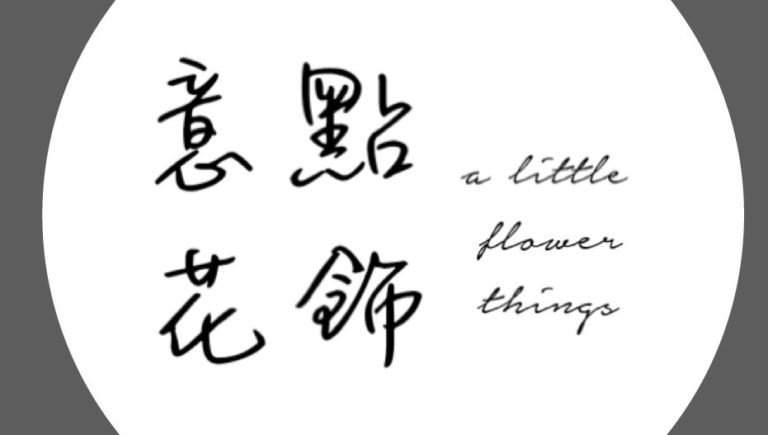 意點
花飾
a little
flower
things